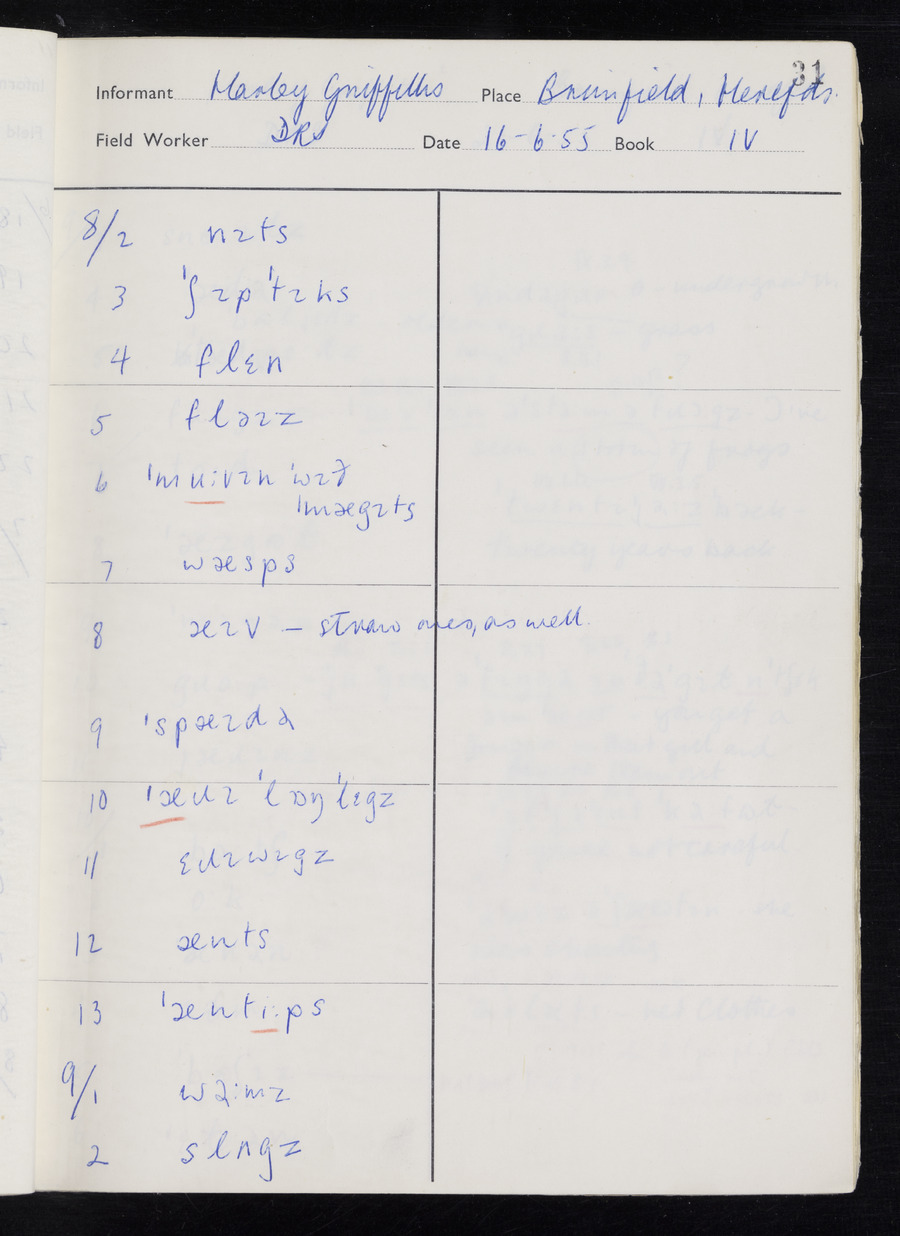 31
Informant Harley Griffiths Place Brimfield, Herefds.
Field Worker DRS Date 16-6-55 Book IV
8/2 nɪts
3 ˈʃɪpˈtɪks
4 flɛn
5 fləɪz
6 ˈmuːvɪn ˈwɪð
ˈmægɪts
7 wæsps
8 æɪv – straw ones, as well.
9 ˈspæɪdə
10 ˈædɪ ˈlɔŋˈlɛgz
11 ɛɪɪwɪgz
12 ænts
13 ˈæntiːps
9/1 wəːmz
2 slʌgz